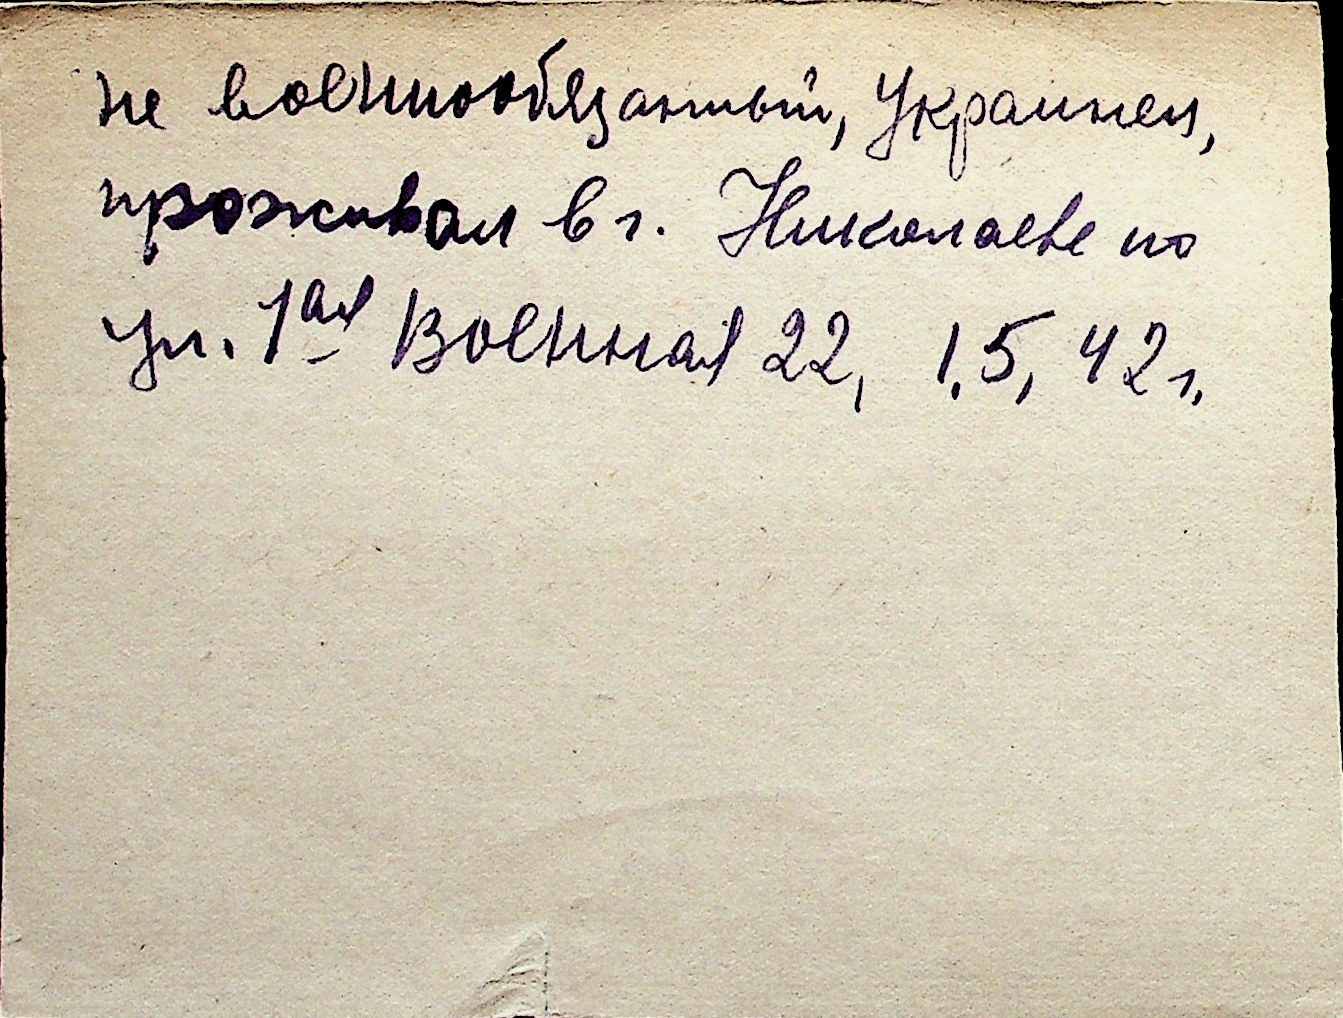 не военнообязанный, Украинец,
проживал в г. Николаеве по
ул. 1ая Военная 22, 1.5, 42 г.